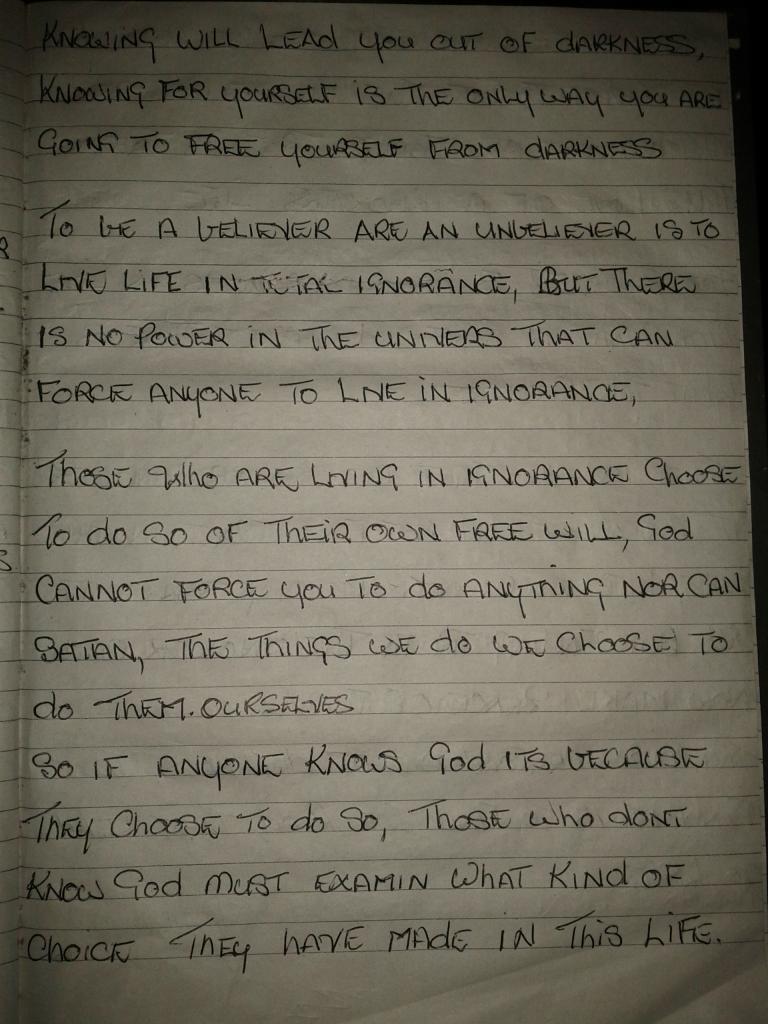 KNOWING WILL LEAD you OUT OF dARKNESS,
KNOWING FOR yOURSELF IS THE ONLY WAY you ARE
GOING TO FREE yOURSELF FROM dARKNESS
To bE A bELIEVER ARE AN UNbELIEVER IS TO
LIVE LiFE IN TOTAL IGNORANCE, BUT THERE
IS NO POWER iN THE UNIVERS THAT CAN
FORCE ANyONE TO LIVE iN IGNORANCE,
Those Who ARE LIVING IN IGNORANCE Choose
To do SO OF THEiR OWN FREE WILL, God
CANNOT FORCE you To do ANyTHING NOR CAN
SATAN, THE THINGS WE do WE Choose TO
do THEM. OURSELVES
SO IF ANyONE KNOWS God ITS bECAUSE
THEy Choose To do So, Those Who dONT
KNOW God MUST EXAMIN WhAT KINd OF
ChOICE THEy hAVE MAdE IN This LiFE.